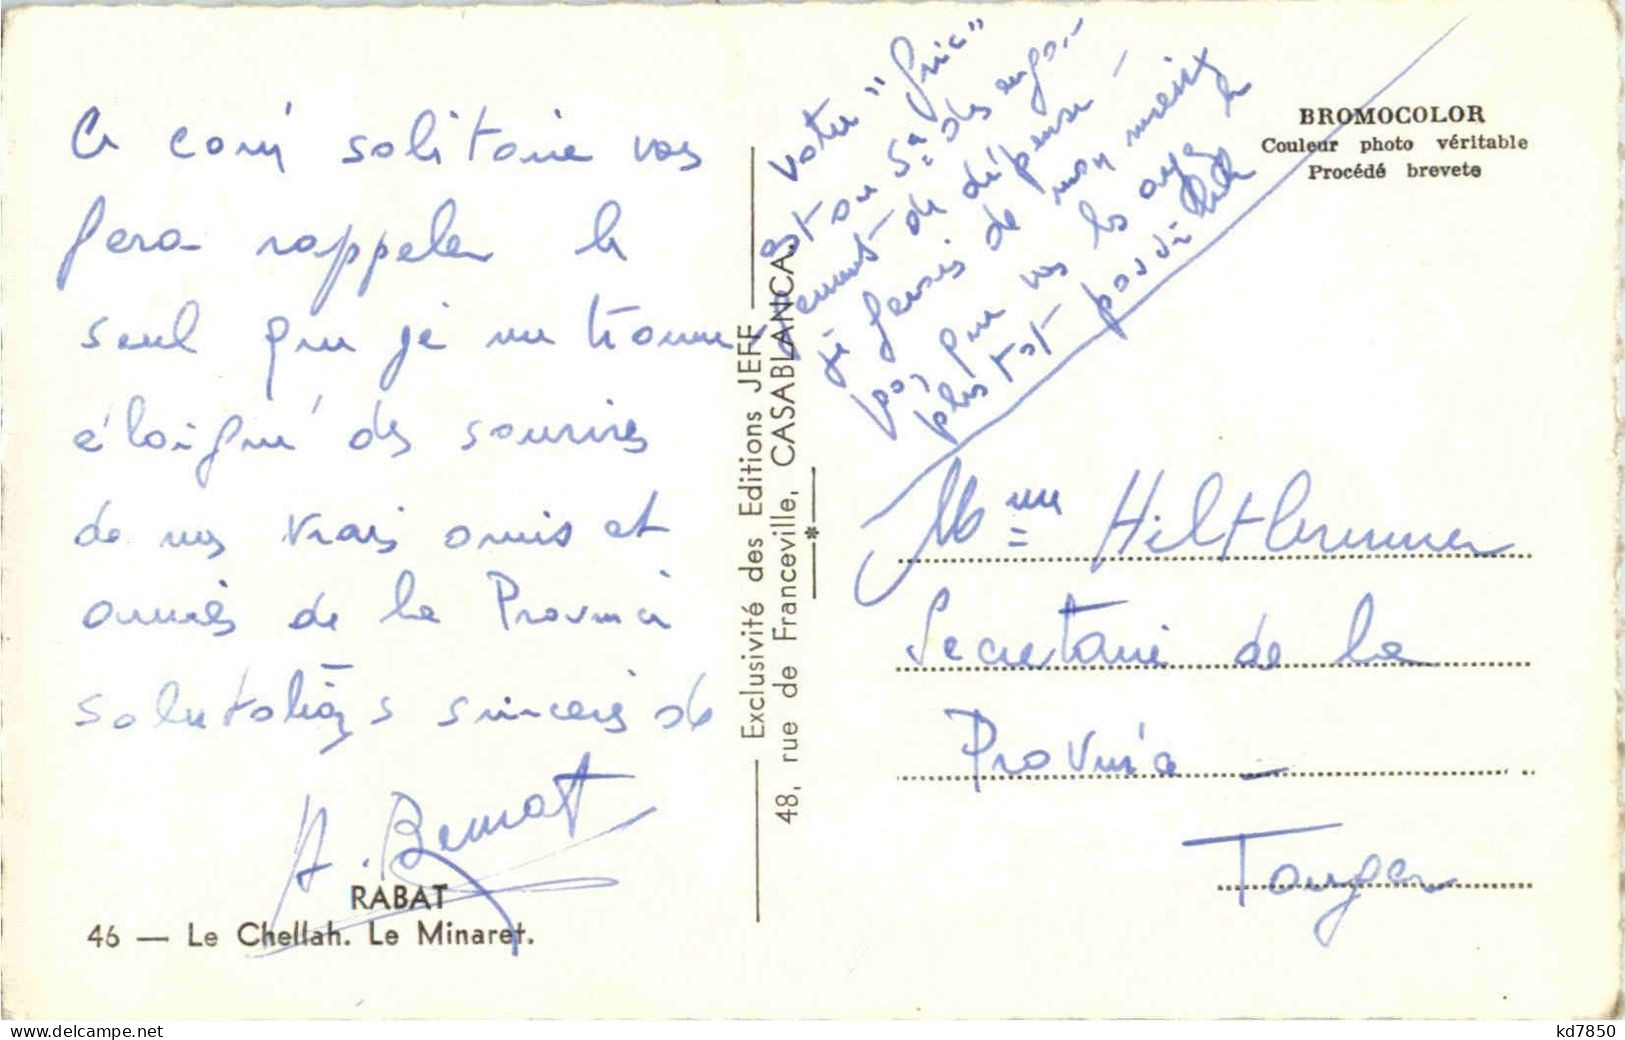 Ce coin solitaire vous
fera rappeler le
seul que je me trouve
éloigné des sourires
de mes vrais amis et
amies de la Province
salutations sincères de
A. Bennat
RABAT
46 — Le Chellah. Le Minaret.
Exclusivité des Editions JEFF
48, rue de Franceville, CASABLANCA.
*
votre "fric"
est au S. des enga-
gement de dépense
je ferais de mon mieux
pour que vous les ayez le
plus tôt possible
BROMOCOLOR
Couleur photo véritable
Procédé breveté
Mme Hiltbrunner
Secrétaire de la
Province -
Tanger
delcampe.net
kd7850